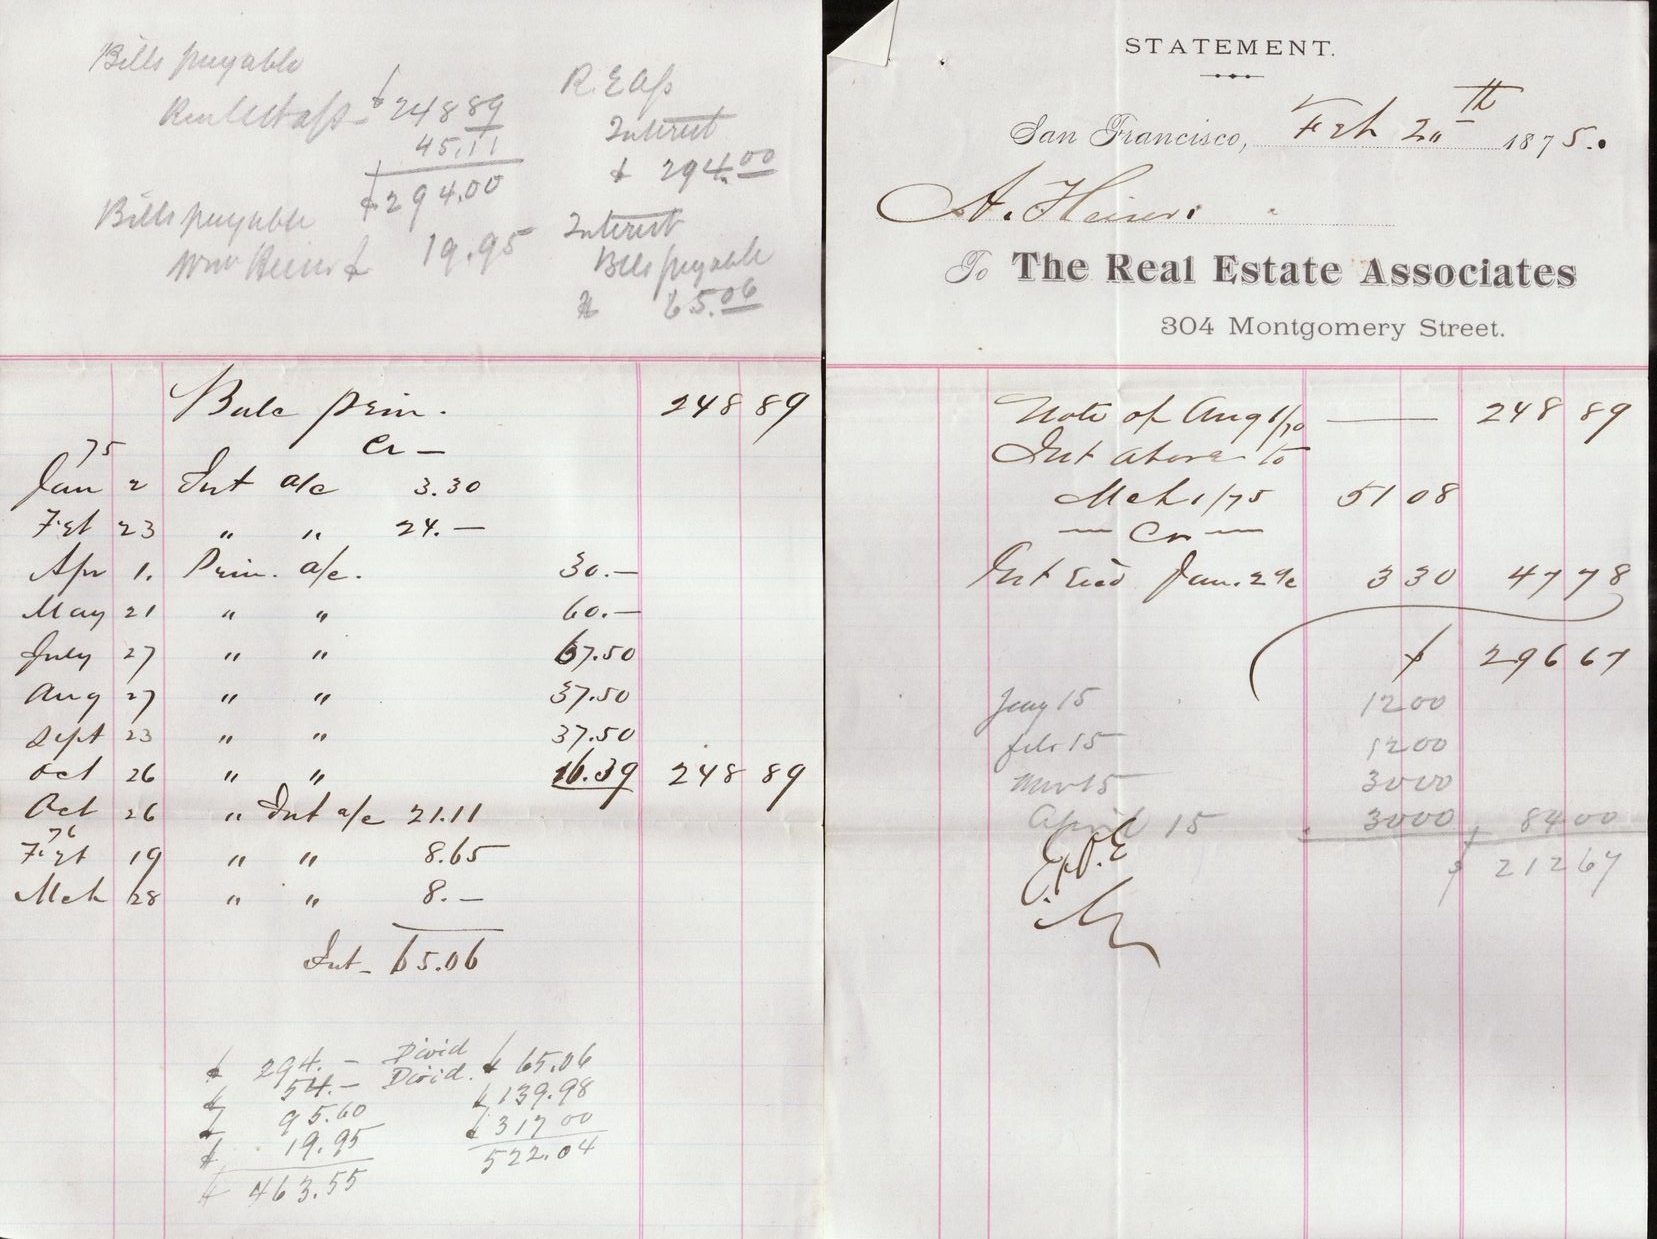 Bills payable
$ 248 89
45.11
$ 294.00
Bills payable
19.95
R. E. a/s
Interest
$ 294.00
Interest
Bills payable
$ 65.06
Balc prin. 248 89
Cr —
75
Jan 2 Int a/c 3.30
Feb 23 " " 24.—
Apr 1. Prin. a/c. 30.—
May 21 " " 60.—
July 27 " " 67.50
Aug 27 " " 37.50
Sept 23 " " 37.50
Oct 26 " " 16.39 248 89
Oct 26 " Int a/c 21.11
76
Feb 19 " " 8.65
Mch 28 " " 8.—
Int— 65.06
$ 294.— Divid $ 65.06
$ 54.— Divid. $ 139.98
$ 95.60 $ 317 00
$ 19.95 522.04
$ 463.55
STATEMENT.
San Francisco, Feb 20th 1875.
A.
To The Real Estate Associates
304 Montgomery Street.
Note of Aug 1/70 — 248 89
Int above to
Mch 1/75 51 08
— Cr —
Int Jan. 2 3 30 47 78
$ 296 67
Jany 15 12 00
feb 15 12 00
Mar 15 30 00
April 15 30 00 84 00
$ 212 67
E. O. E